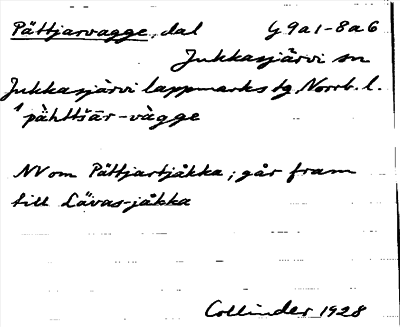 Pättjarvagge, dal 49a1-8a6
Jukkasjärvi sn
Jukkasjärvi lappmarks tg. Norrb. l.
pàhttšār-vàgge
NV om Pättjartjåkka; går fram
till Lävas-jåkka
Collinder 1928